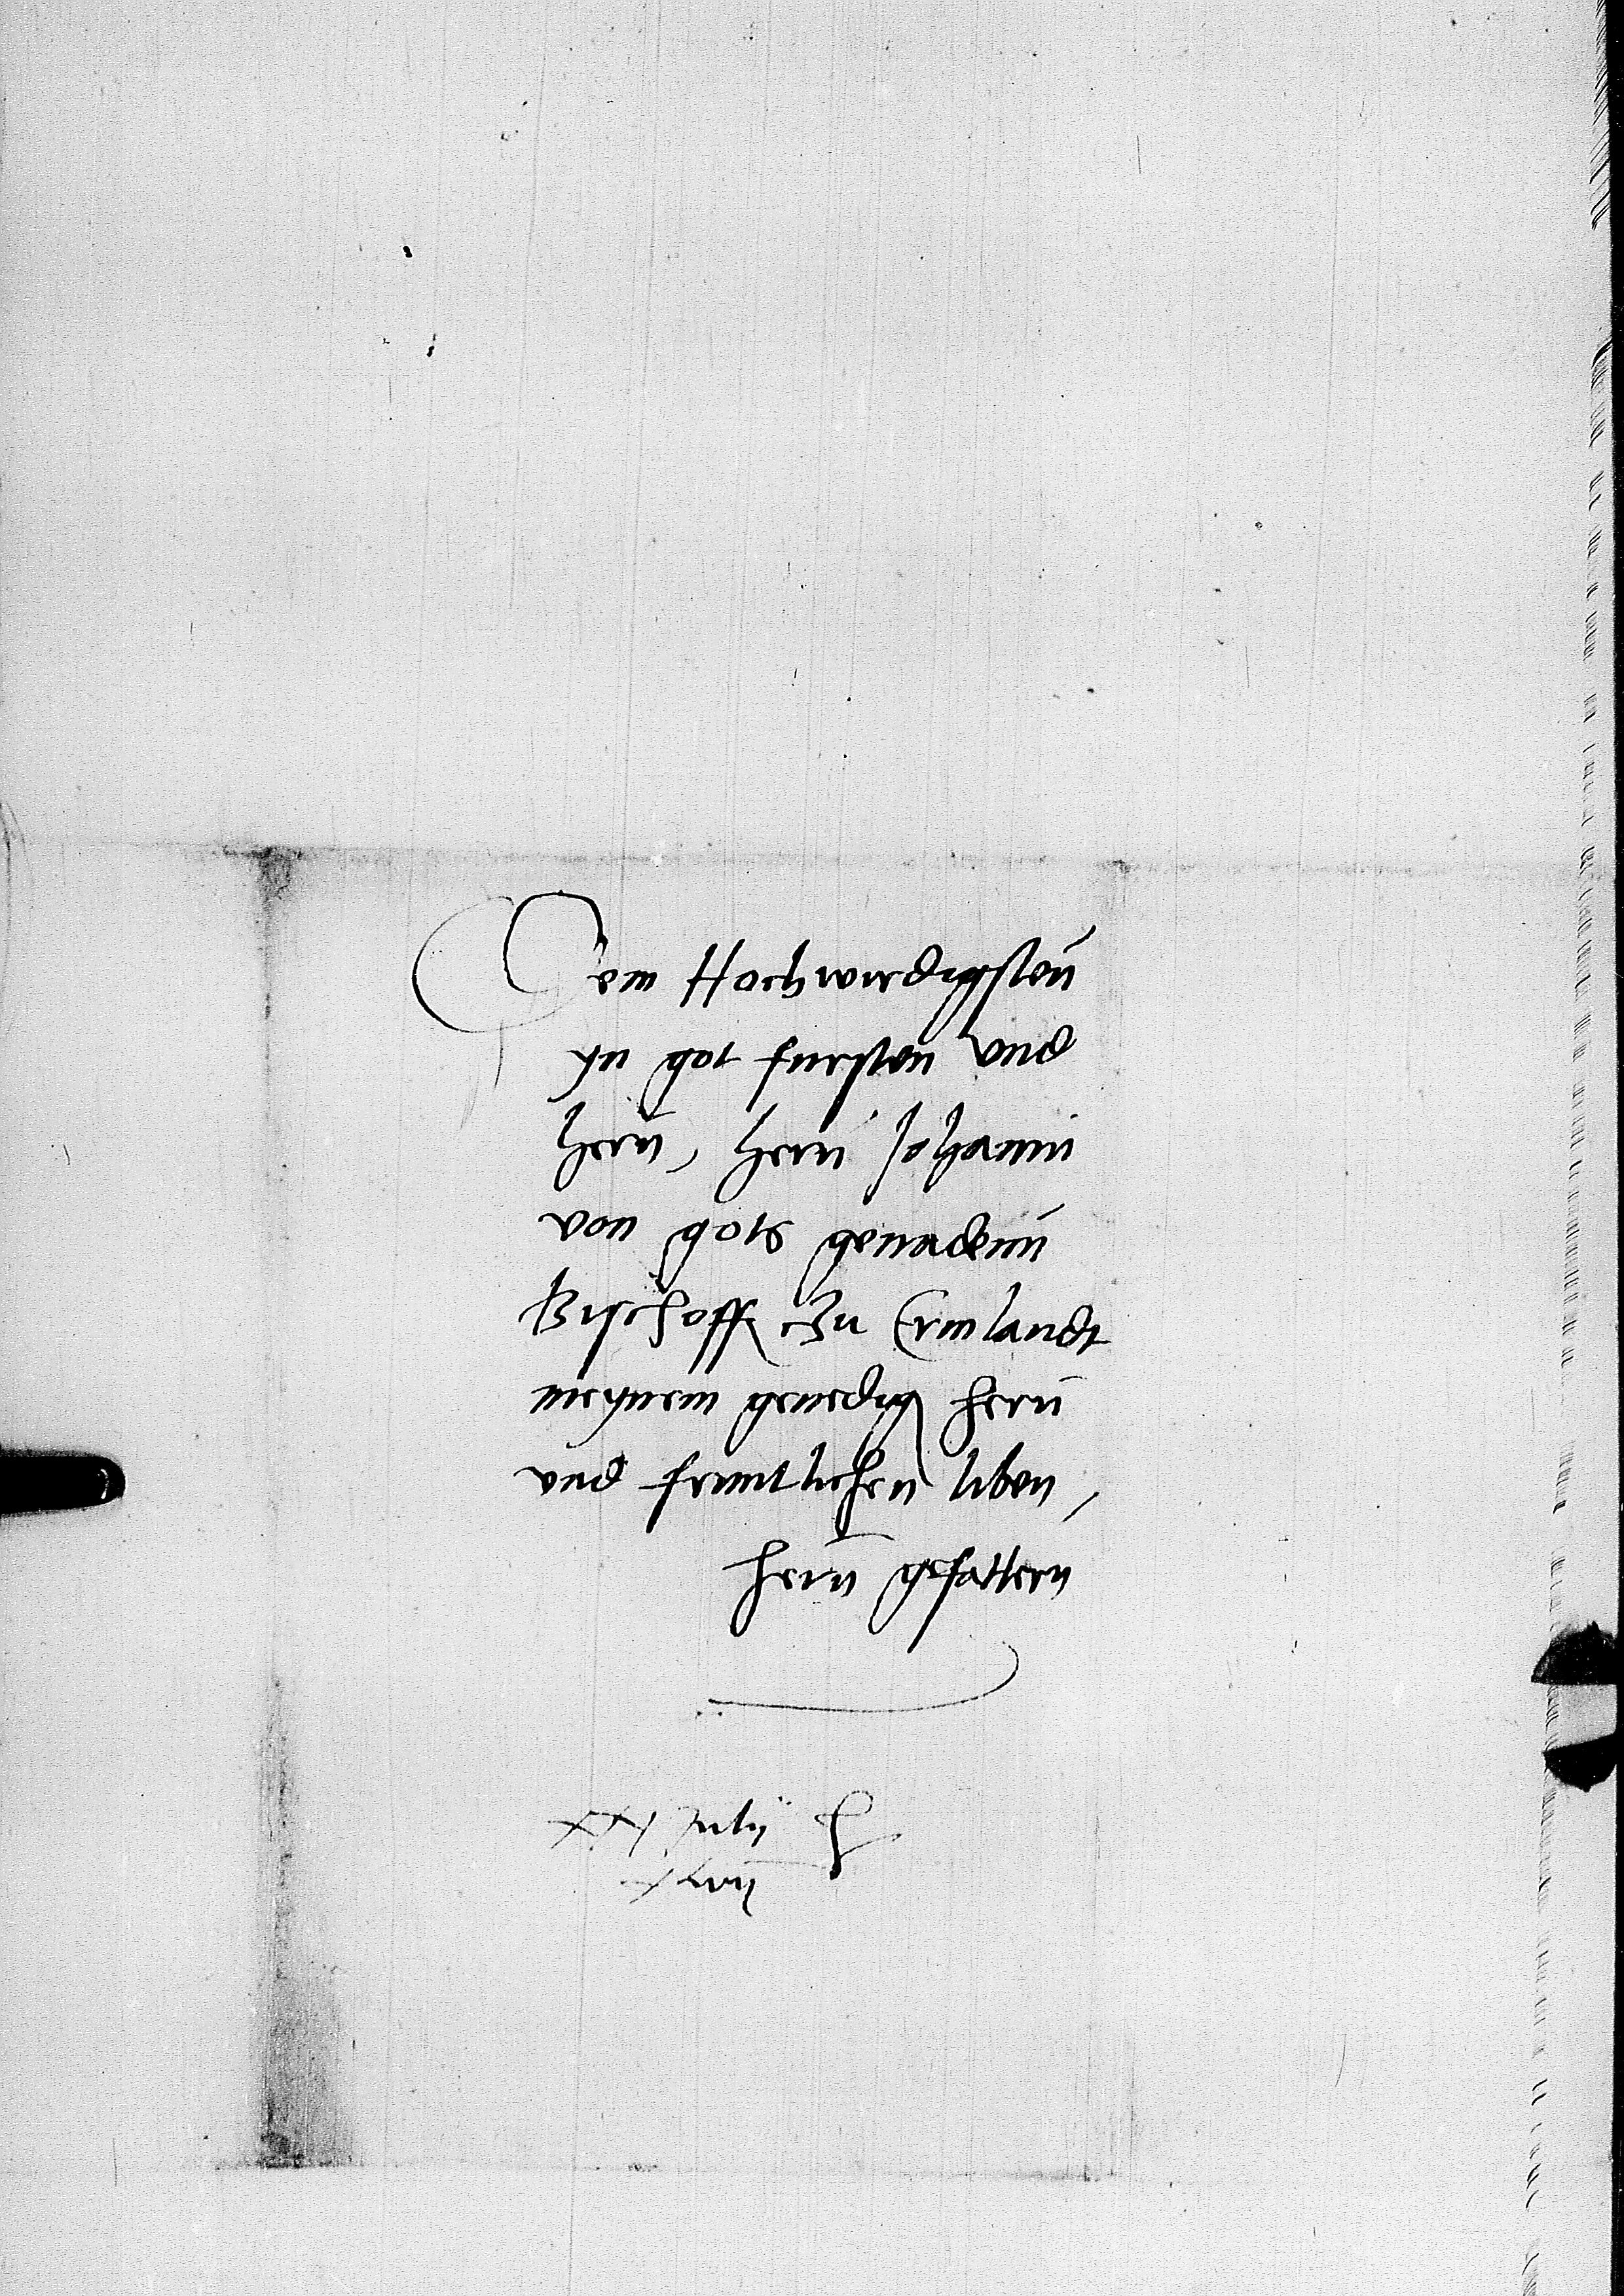 Dem Hochwirdigsten
yn got fursten vnd
hern, hern Johanni
von gots genadenn
Bischoff czu Ermlandt
meynem genedigen hern
vnd fruntlichen liben,
hern gefattern
XX July